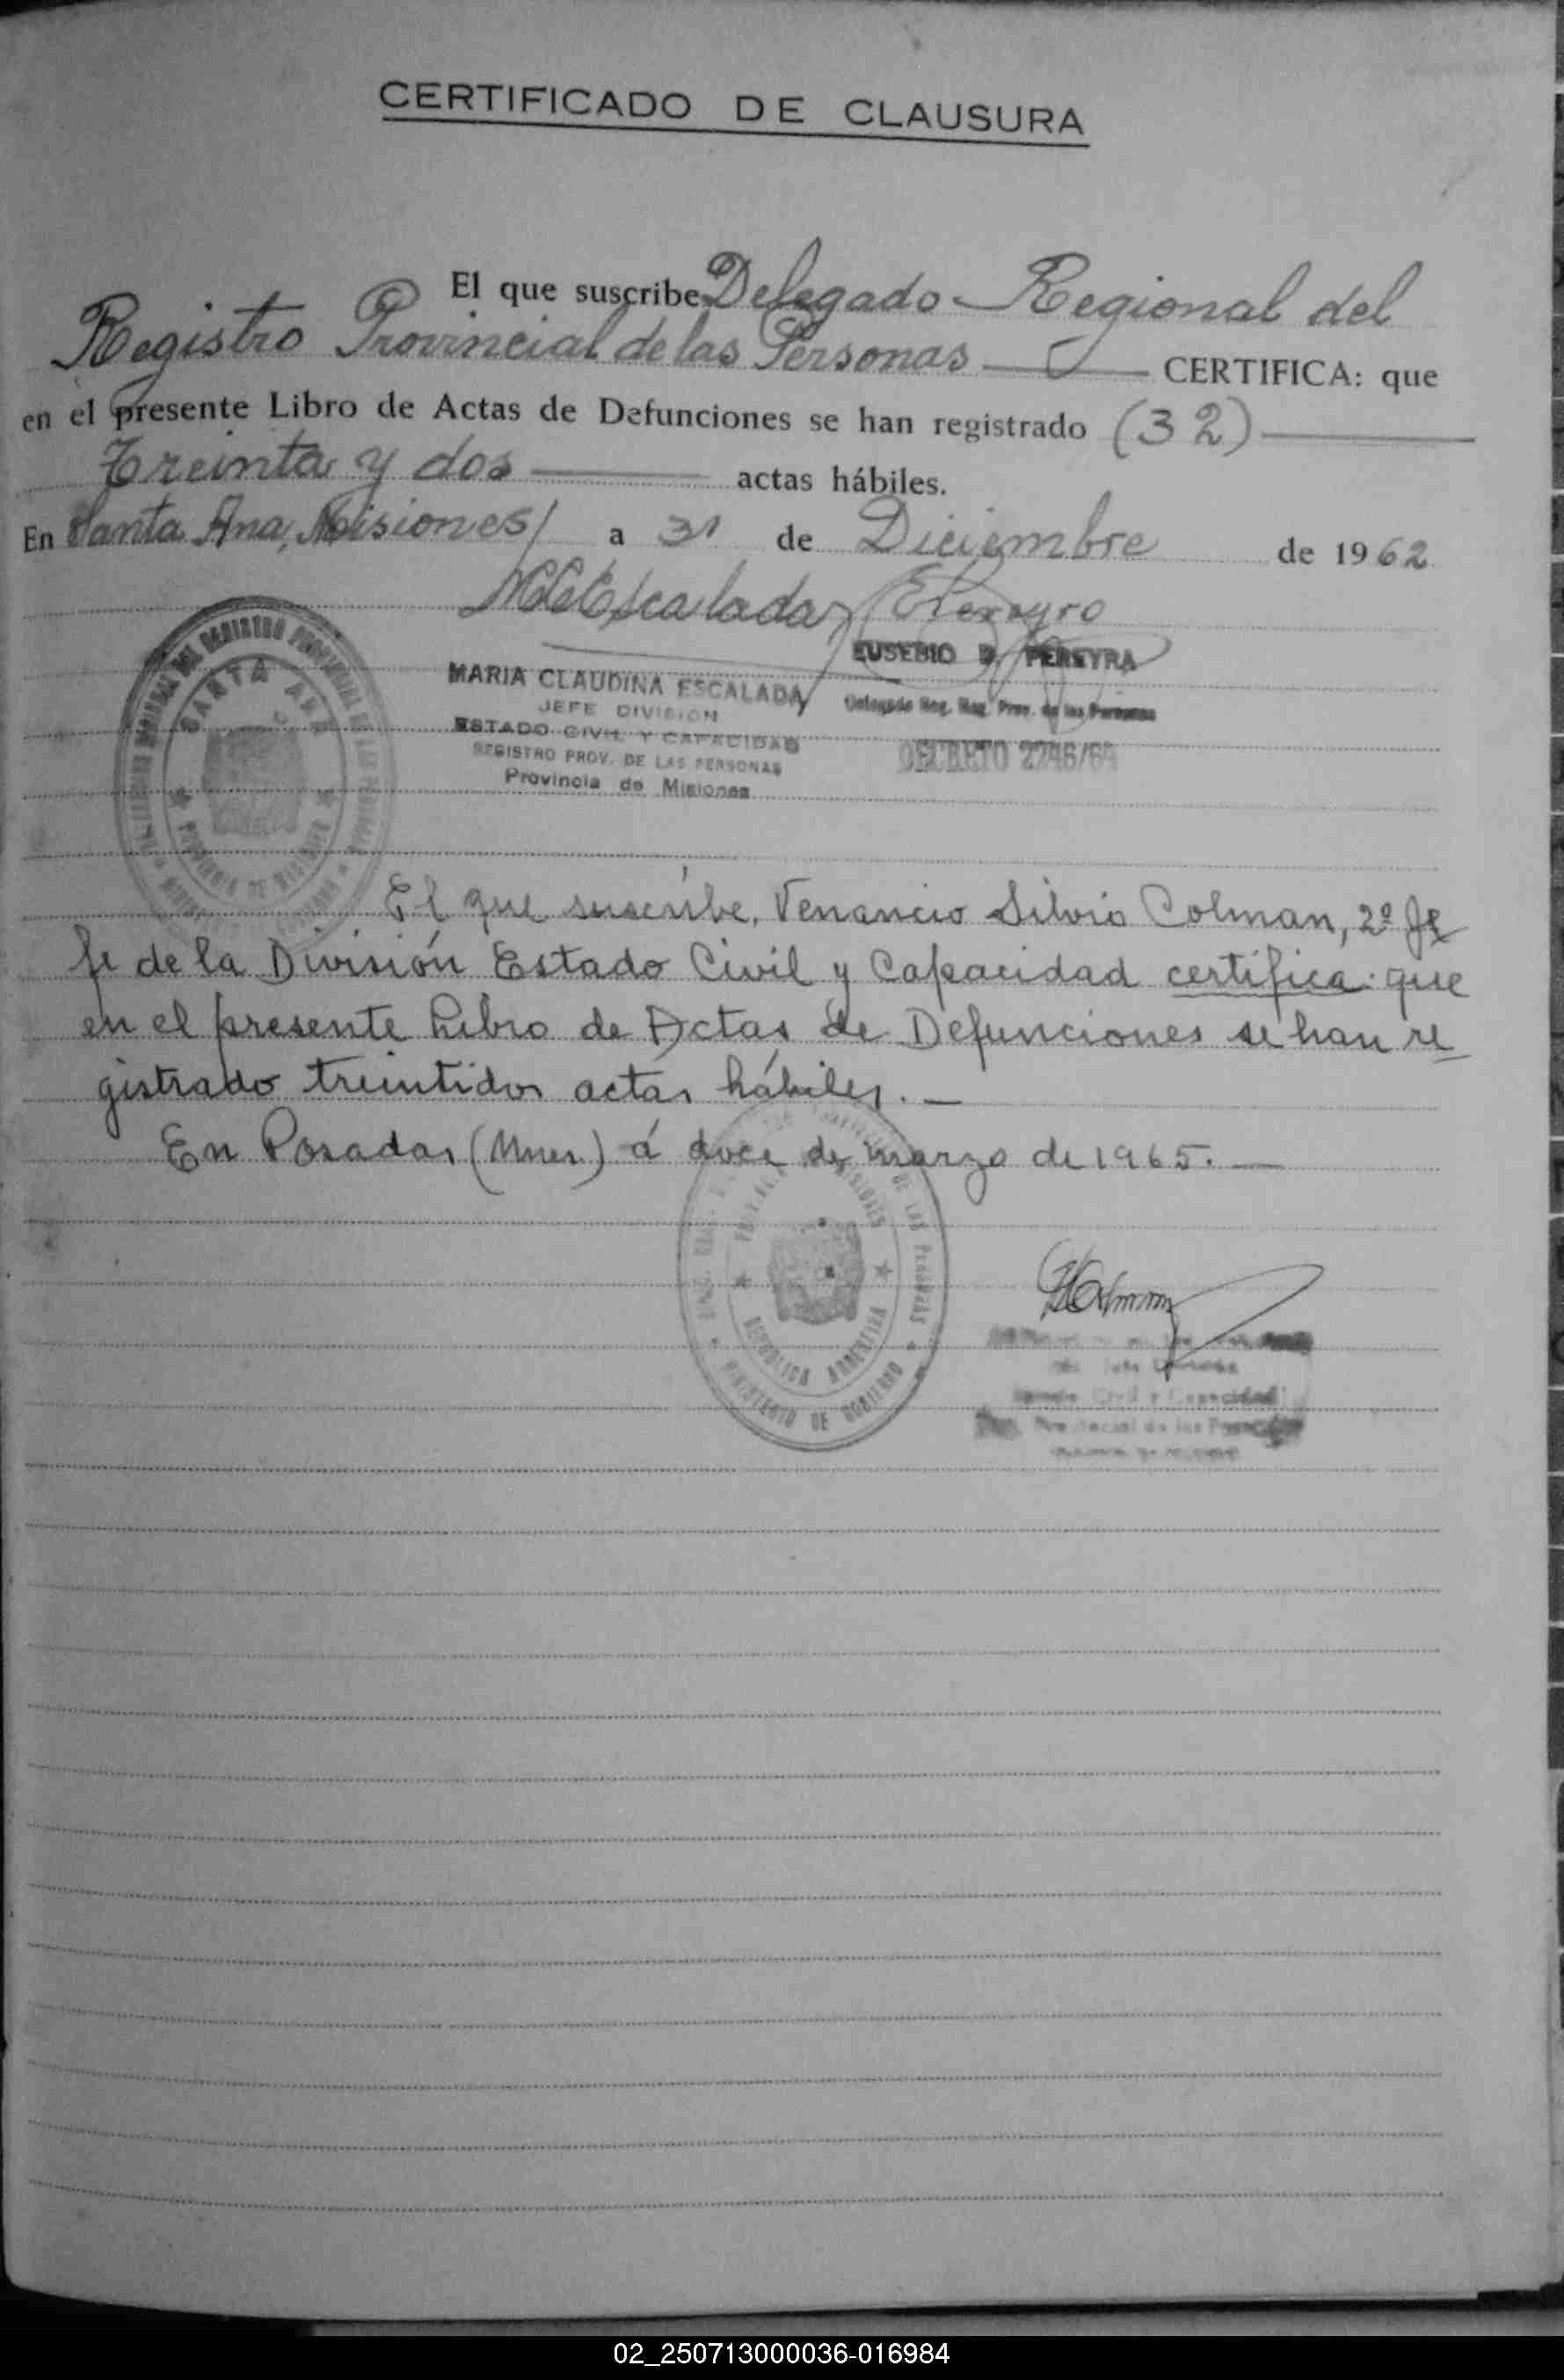 CERTIFICADO DE CLAUSURA
El que suscribe Delegado Regional del
Registro Provincial de las Personas CERTIFICA: que
en el presente Libro de Actas de Defunciones se han registrado (32)
Treinta y dos actas hábiles.
En Santa Ana, Misiones/ a 31 de Diciembre de 1962
MCEscalada EPereyra
EUSEBIO D. PEREYRA
MARIA CLAUDINA ESCALADA
Delegado Reg. Reg. Prov. de las Personas
JEFE DIVISION
ESTADO CIVIL Y CAPACIDAD
DECRETO 2246/64
REGISTRO PROV. DE LAS PERSONAS
Provincia de Misiones
SANTA ANA
PROVINCIA DE MISIONES
El que suscribe, Venancio Silvio Colman, 2º Je
fe de la División Estado Civil y Capacidad certifica: que
en el presente Libro de Actas de Defunciones se han re
gistrado treintidos actas hábiles. —
En Posadas (Mnes.) á doce de marzo de 1965. —
REPUBLICA ARGENTINA
MINISTERIO DE GOBIERNO
Colman
Civil y Capacidad
Provincial de las Personas
02_250713000036-016984